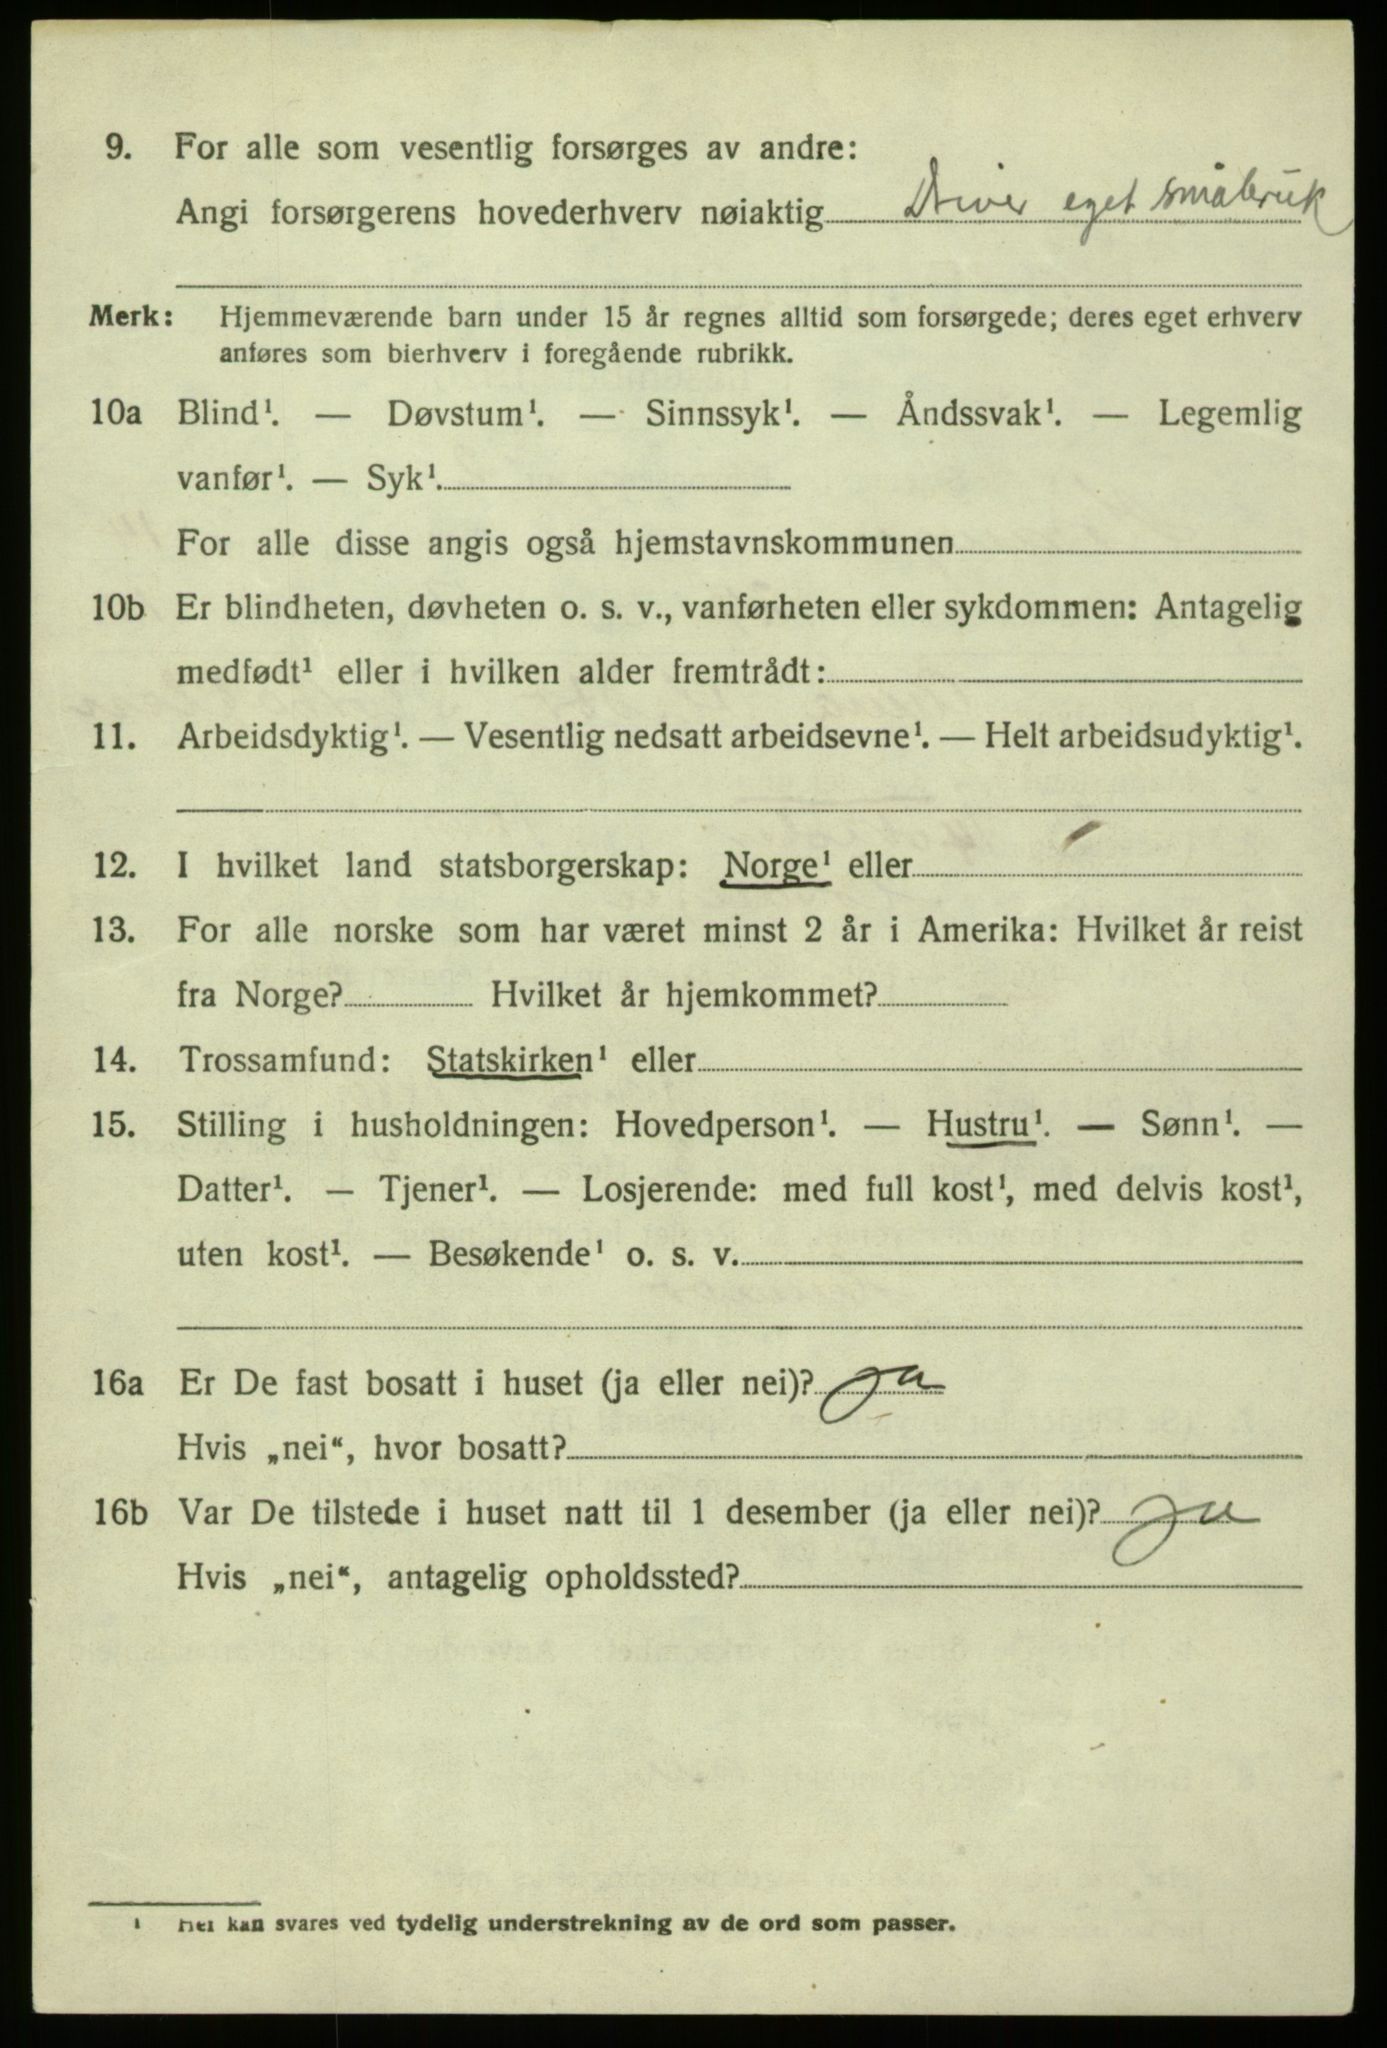 9. For alle som vesentlig forsørges av andre:
Angi forsørgerens hovederhverv nøiaktig Driver eget småbruk
Merk: Hjemmeværende barn under 15 år regnes alltid som forsørgede; deres eget erhverv
anføres som bierhverv i foregående rubrikk.
10a Blind¹. — Døvstum¹. — Sinnssyk¹. — Åndssvak¹. — Legemlig
vanfør¹. — Syk¹.
For alle disse angis også hjemstavnskommunen
10b Er blindheten, døvheten o. s. v., vanførheten eller sykdommen: Antagelig
medfødt¹ eller i hvilken alder fremtrådt:
11. Arbeidsdyktig¹. — Vesentlig nedsatt arbeidsevne¹. — Helt arbeidsudyktig¹.
12. I hvilket land statsborgerskap: Norge¹ eller
13. For alle norske som har været minst 2 år i Amerika: Hvilket år reist
fra Norge? Hvilket år hjemkommet?
14. Trossamfund: Statskirken¹ eller
15. Stilling i husholdningen: Hovedperson¹. — Hustru¹. — Sønn¹. —
Datter¹. — Tjener¹. — Losjerende: med full kost¹, med delvis kost¹,
uten kost¹. — Besøkende¹ o. s. v.
16a Er De fast bosatt i huset (ja eller nei)? ja
Hvis „nei“, hvor bosatt?
16b Var De tilstede i huset natt til 1 desember (ja eller nei)? ja
Hvis „nei“, antagelig opholdssted?
¹ Her kan svares ved tydelig understrekning av de ord som passer.